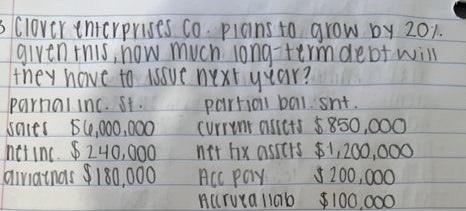 3 Clover enterprises Co. plans to grow by 20%.
given this, how much long-term debt will
they have to issue next year?
partial inc. st. partial bal. sht.
sales $6,000,000 current assets $850,000
net inc. $240,000 net fix assets $1,200,000
dividends $180,000 Acc pay $200,000
Accrued liab $100,000